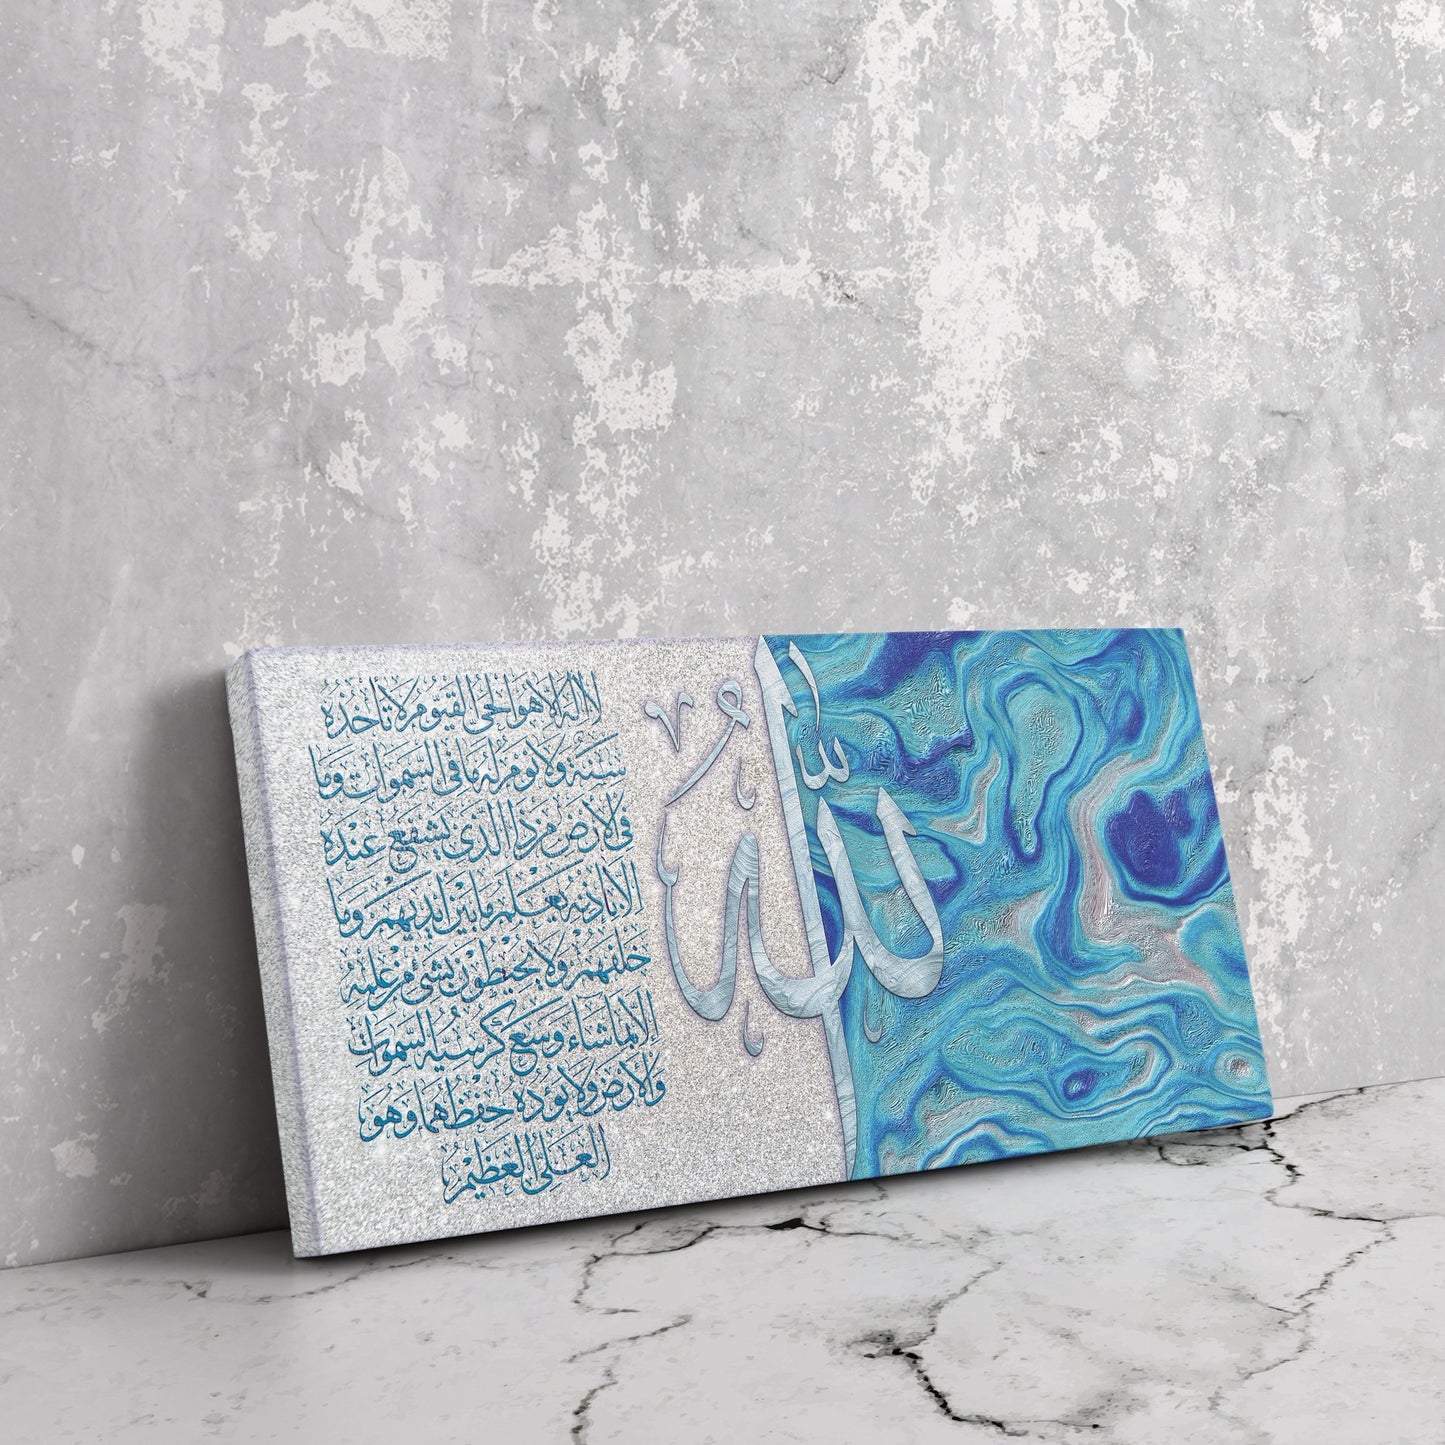 ٱللّٰهُ
لا اله الا هو الحى القيوم لا تأخذه
سنة ولا نوم له ما فى السموات وما
فى الارض من ذا الذى يشفع عنده
الا باذنه يعلم ما بين ايديهم وما
خلفهم ولا يحيطون بشئ من علمه
الا بما شاء وسع كرسيه السموات
والارض ولا يوده حفظهما وهو
العلى العظيم